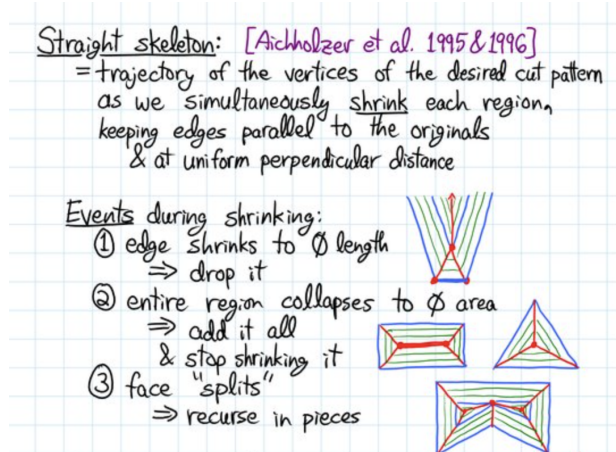 Straight skeleton: [Aichholzer et al. 1995 & 1996]
= trajectory of the vertices of the desired cut pattern
as we simultaneously shrink each region,
keeping edges parallel to the originals
& at uniform perpendicular distance
Events during shrinking:
① edge shrinks to Ø length
⇒ drop it
② entire region collapses to Ø area
⇒ add it all
& stop shrinking it
③ face "splits"
⇒ recurse in pieces